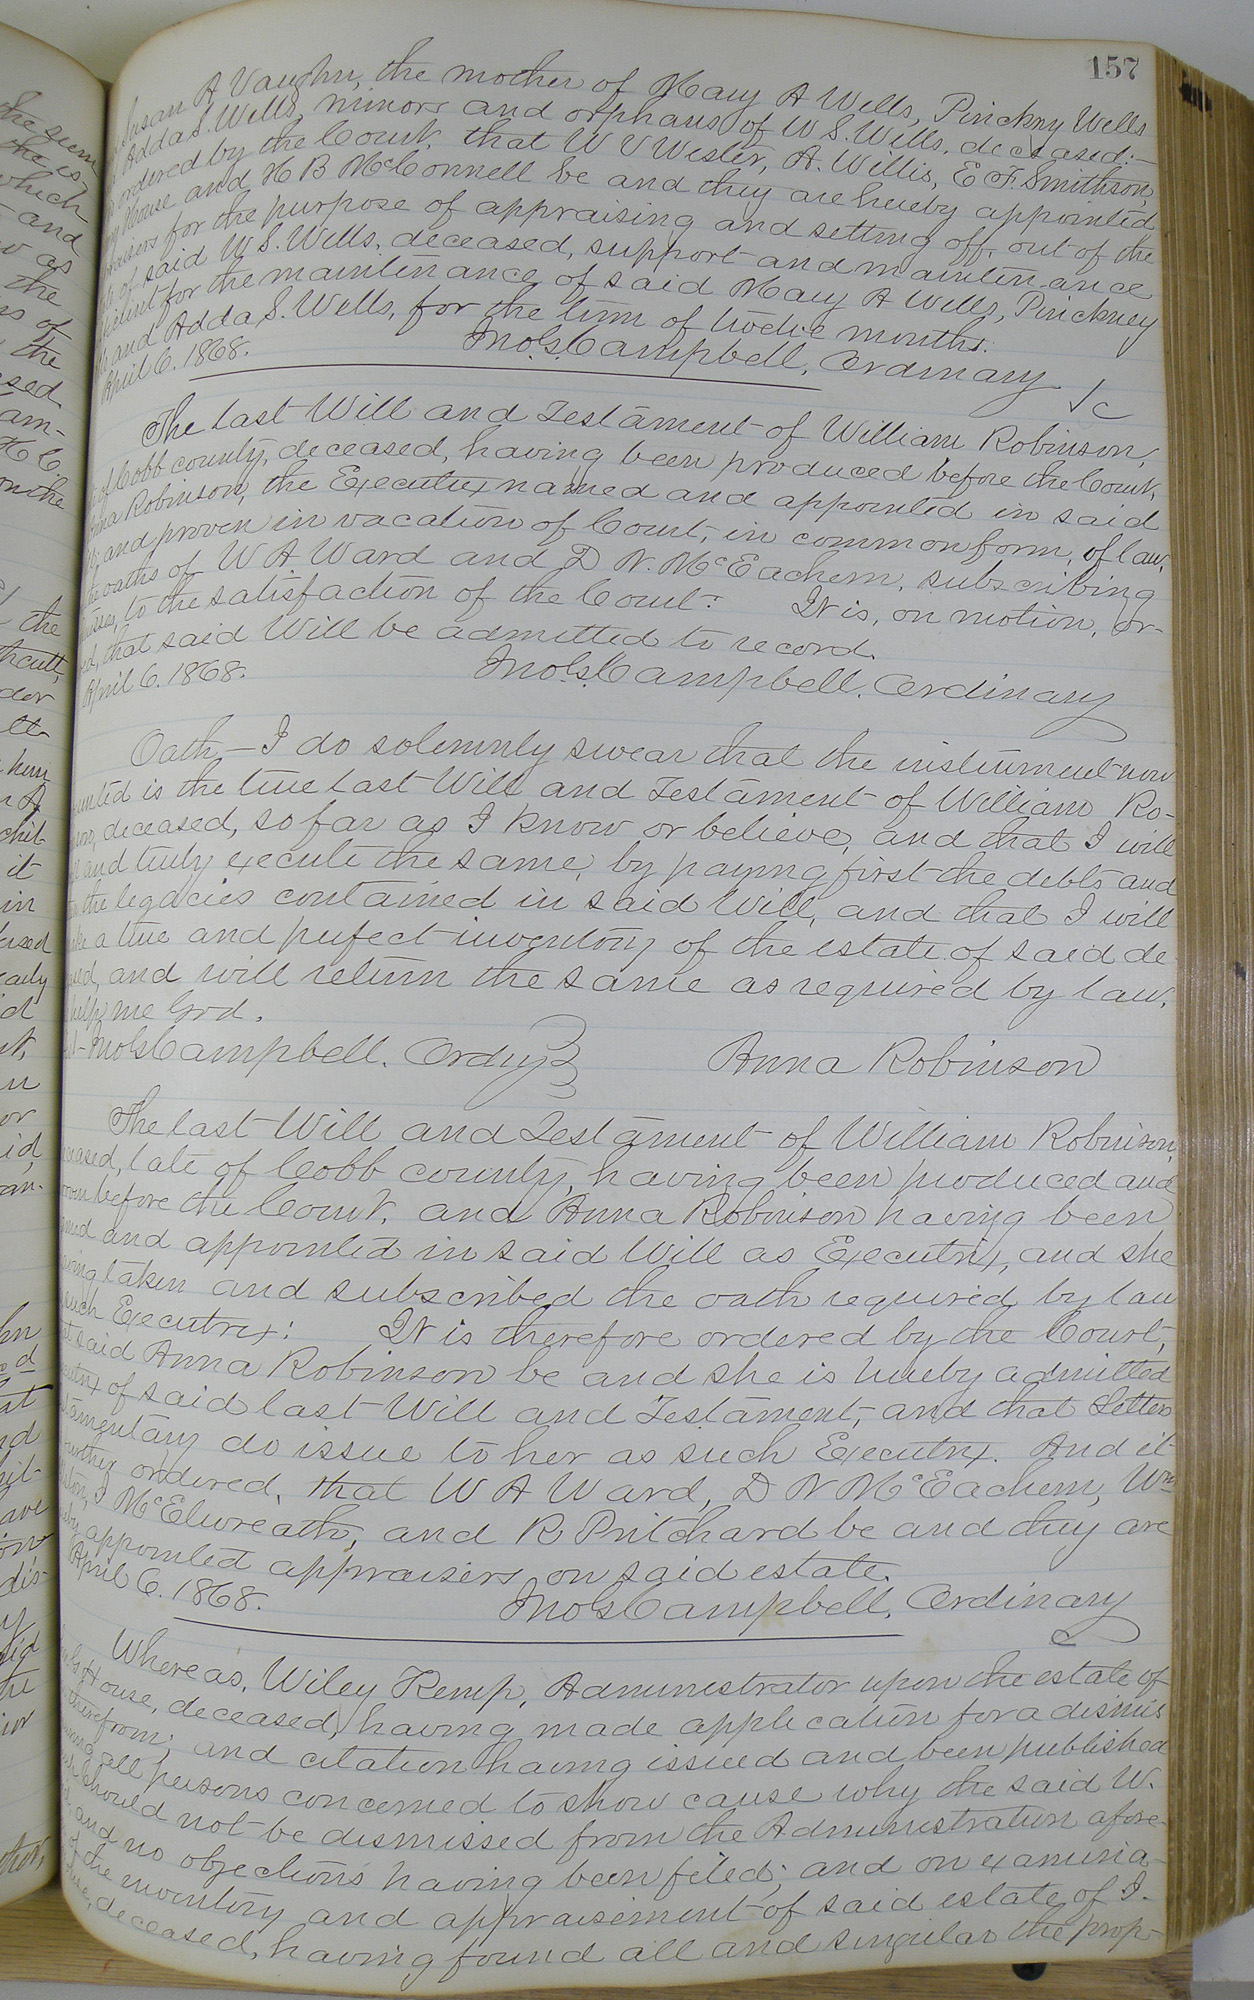 157
Susan A Vaughn, the mother of Mary A Wells, Pinckny Wells
Adda S. Wells, minors and orphans of W S. Wells, deceased:—
ordered by the Court, that W V Wester, A. Willis, E F. Smithson,
House and H B McConnell be and they are hereby appointed
praisers for the purpose of appraising and setting off, out of the
of said W S. Wells, deceased, support and maintenance
ficient for the maintenance of said Mary A Wells, Pinckney
and Adda S. Wells, for the term of twelve months.
April 6. 1868. Jno. G. Campbell, Ordinary
The last Will and Testament of William Robinson,
of Cobb county, deceased, having been produced before the Court,
Robinson, the Executrix named and appointed in said
and proven in vacation of Court, in common form, of law,
the oaths of W A. Ward and D N. McEachern, subscribing
nesses, to the satisfaction of the Court: It is, on motion, or-
ed, that said Will be admitted to record.
April 6. 1868. Jno. G. Campbell, Ordinary
Oath,— I do solemnly swear that the instrument now
sented is the true last Will and Testament of William Ro-
deceased, so far as I know or believe, and that I will
and truly execute the same, by paying first the debts and
the legacies contained in said Will, and that I will
a true and perfect inventory of the estate of said de-
and will return the same as required by law,
help me God.
Jno G Campbell, Ordny Anna Robinson
The last Will and Testament of William Robinson,
ceased, late of Cobb county, having been produced and
before the Court, and Anna Robinson having been
and appointed in said Will as Executrix, and she
having taken and subscribed the oath required by law
such Executrix: It is therefore ordered by the Court,
said Anna Robinson be and she is hereby admitted
of said last Will and Testament, and that Letters
tamentary do issue to her as such Executrix. And it
further ordered, that W A Ward, D N McEachern, Wm
McElwreath, and R Pritchard be and they are
appointed appraisers on said estate.
April 6. 1868. Jno G Campbell, Ordinary
Whereas, Wiley Kemp, Administrator upon the estate of
House, deceased, having made application for a dismis
therefrom; and citation having issued and been published
all persons concerned to show cause why the said W.
should not be dismissed from the Administration afore-
and no objections having been filed; and on examina-
of the inventory and appraisement of said estate of I.
deceased, having found all and singular the prop-